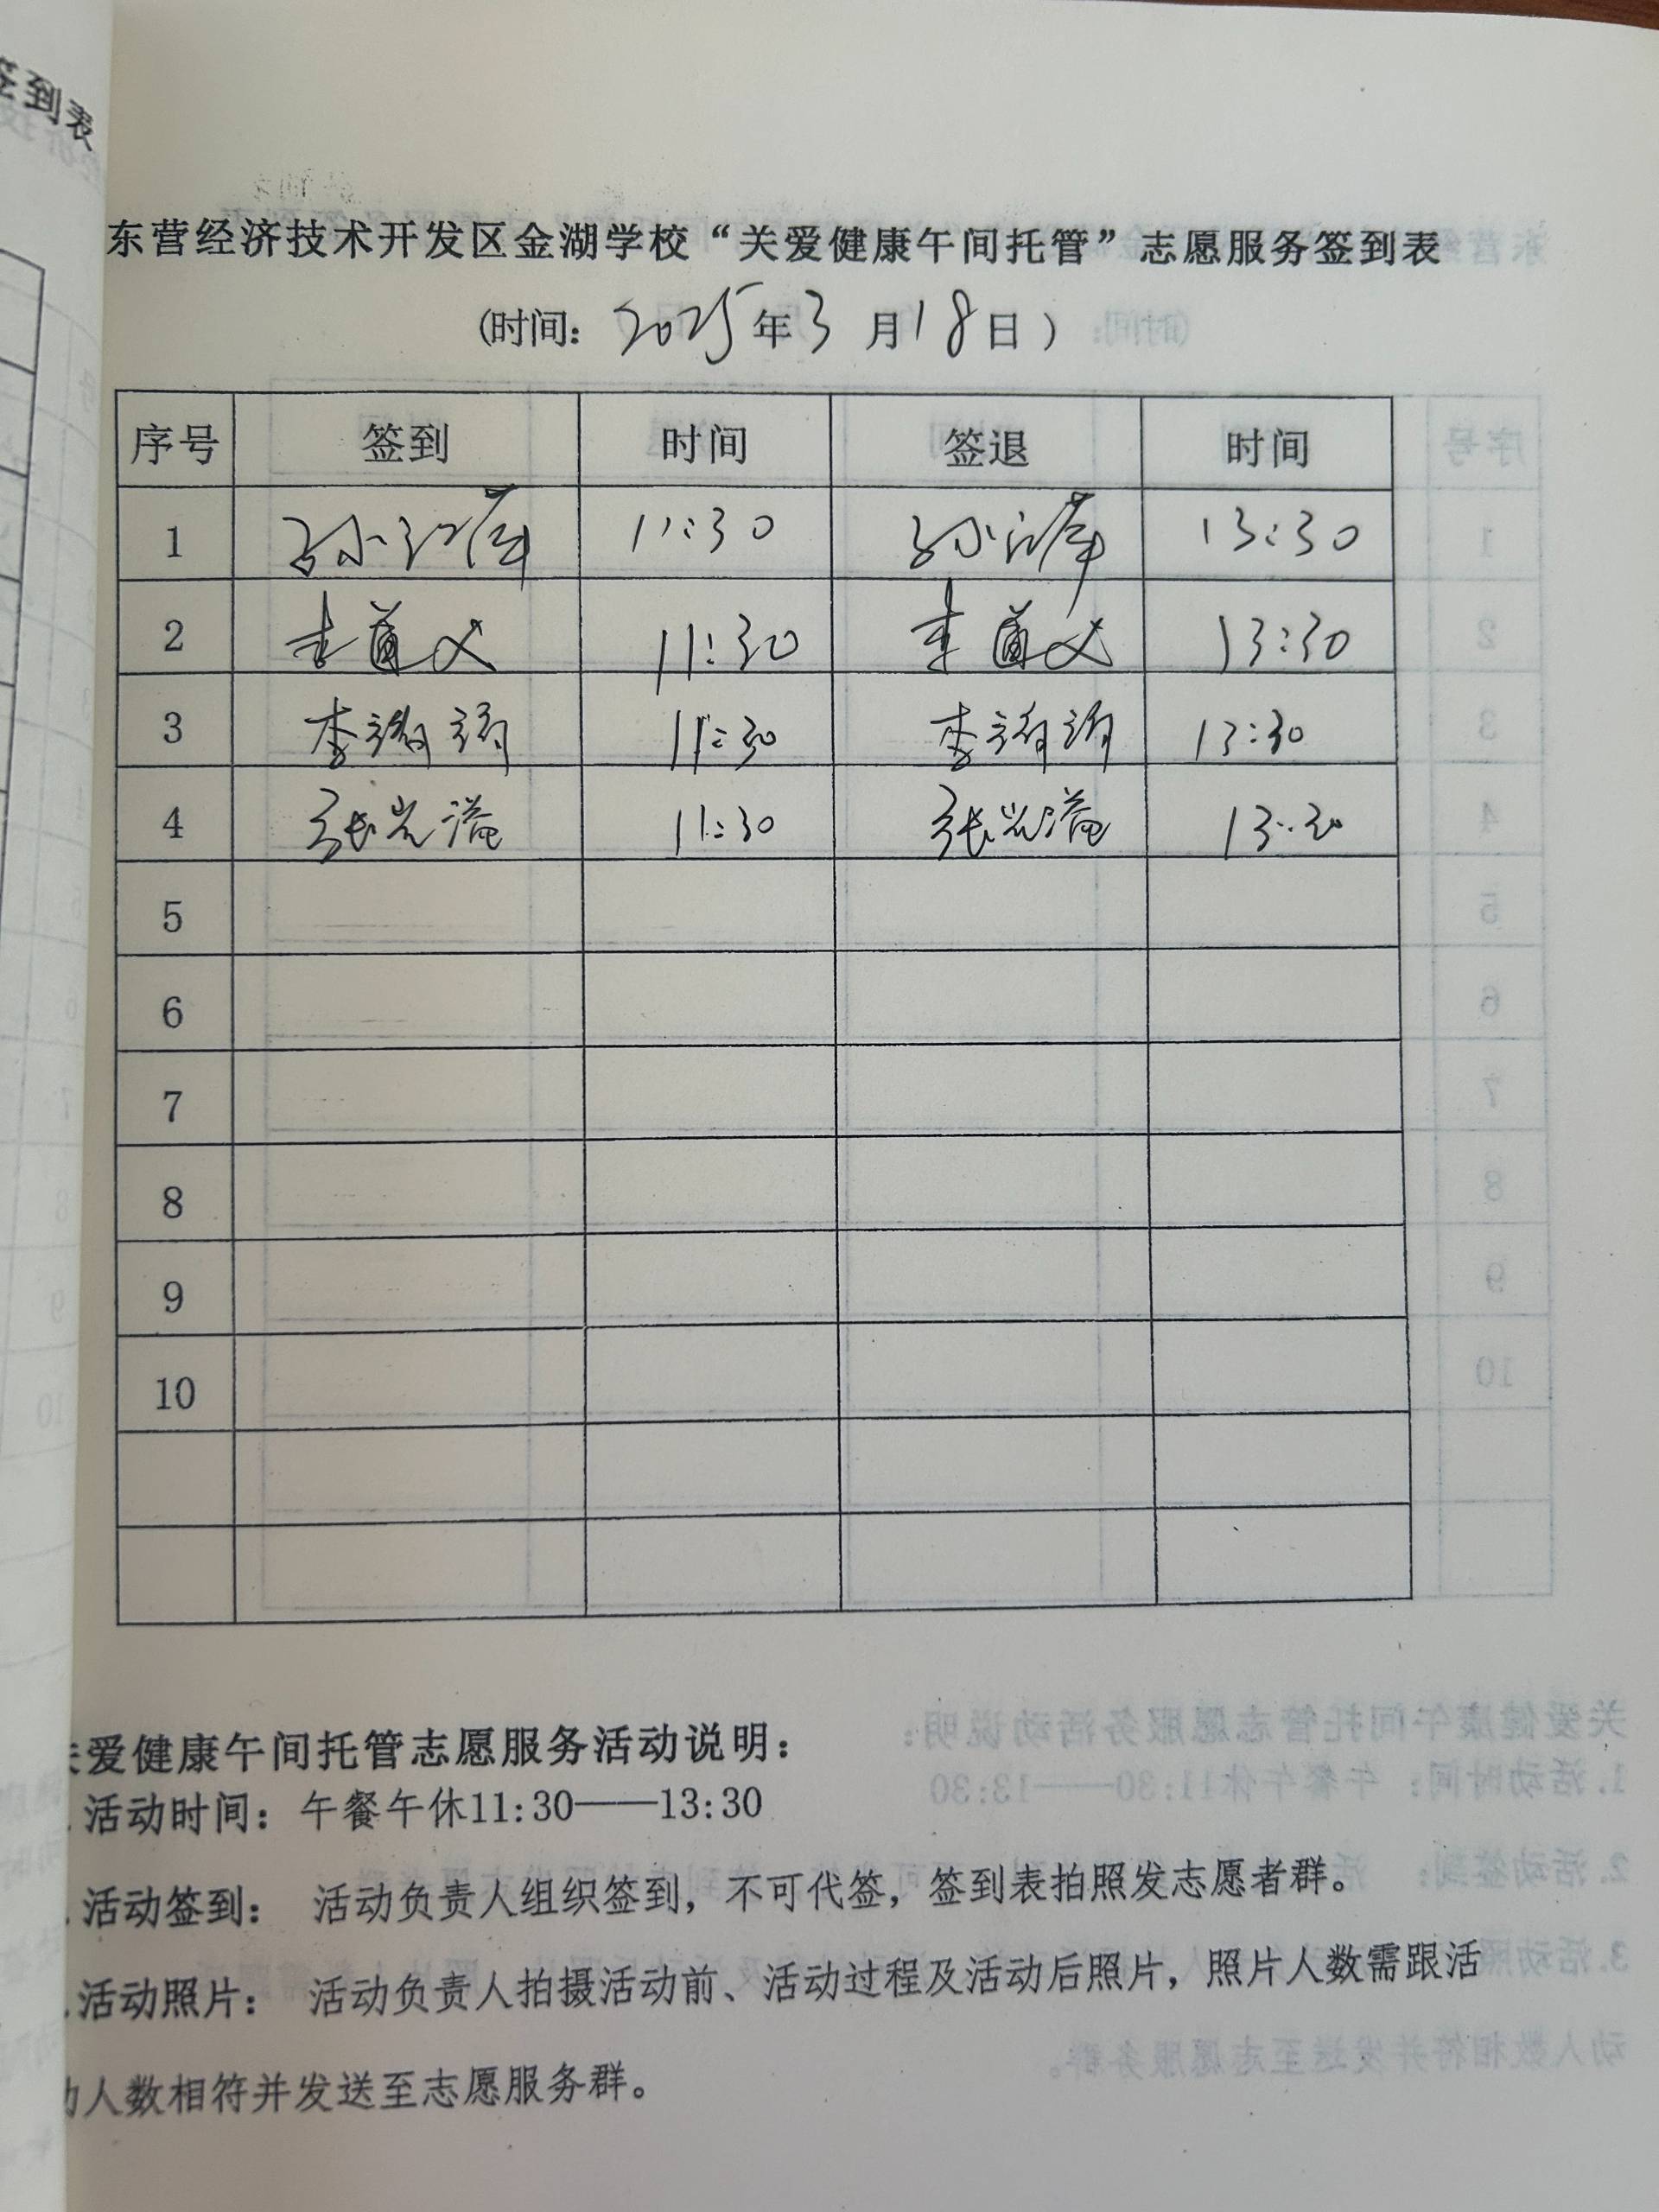 签到表
东营经济技术开发区金湖学校“关爱健康午间托管”志愿服务签到表
(时间: 2025年3月18日)
序号 签到 时间 签退 时间
1 孙 11:30 孙 13:30
2 11:30 13:30
3 李 11:30 李 13:30
4 张 溢 11:30 张 溢 13:30
5
6
7
8
9
10
爱健康午间托管志愿服务活动说明:
活动时间: 午餐午休11:30——13:30
活动签到: 活动负责人组织签到,不可代签,签到表拍照发志愿者群。
活动照片: 活动负责人拍摄活动前、活动过程及活动后照片,照片人数需跟活
动人数相符并发送至志愿服务群。